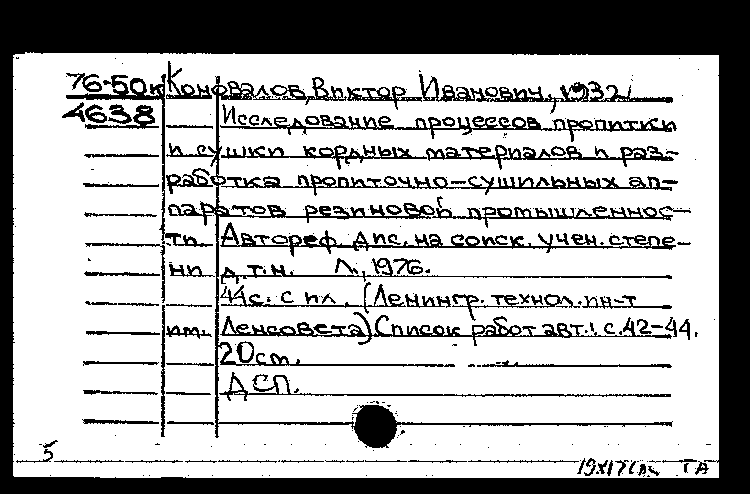 76-50к Коновалов, Виктор Иванович, 1932
4638 Исследование процессов пропитки
и сушки кордных материалов и раз-
работка пропиточно-сушильных ап-
паратов резиновой промышленнос-
ти. Автореф. дис. на соиск. учен. степе-
ни д.т.н. Л., 1976.
44с. с ил. (Ленингр. технол. ин-т
им. Ленсовета) Список работ авт.: с.42-44.
20см.
ДСП.
5
ТА